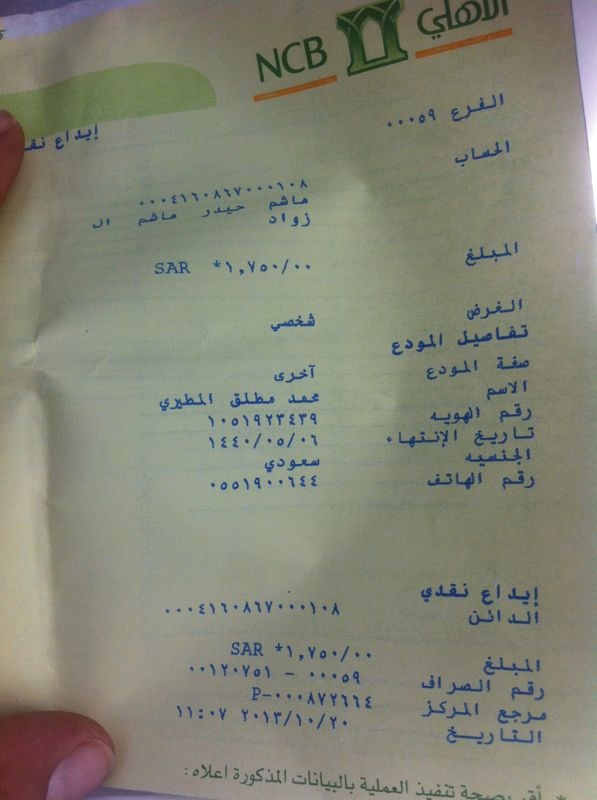 NCB الأهلي
إيداع نقد
الفرع ٠٠٠٥٩
الحساب
٠٠٠٤١٦٠٨٦٧٠٠٠١٠٨
هاشم حيدر هاشم ال
زواد
المبلغ SAR *١,٧٥٠/٠٠
الغرض شخصي
تفاصيل المودع
صفة المودع آخرى
الاسم محمد مطلق المطيري
رقم الهويه ١٠٥١٩٢٣٤٣٩
تاريخ الإنتهاء ١٤٤٠/٠٥/٠٦
الجنسيه سعودي
رقم الهاتف ٠٥٥١٩٠٠٦٤٤
إيداع نقدي
الدائن ٠٠٠٤١٦٠٨٦٧٠٠٠١٠٨
المبلغ SAR *١,٧٥٠/٠٠
رقم الصراف ٠٠٠٥٩ - ٠٠١٢٠٧٥١
مرجع المركز P-٠٠٠٨٧٢٦٦٤
التاريخ ٢٠١٣/١٠/٢٠ ١١:٠٧
* أقر بصحة تنفيذ العملية بالبيانات المذكورة اعلاه :